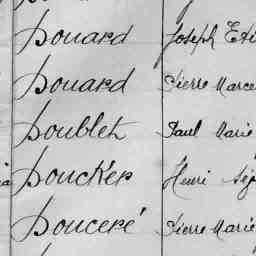 Douard Joseph Eti
Douard Pierre Marce
Doublet Paul Marie
Doucker Henri
Douceré Pierre Marie